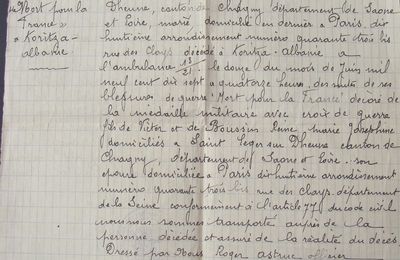 "Mort pour la
France"
a Koritza-
albanie
Dheune, canton de Chagny département de Saone
et Loire, marié domicilié en dernier à Paris, dix
huitième arrondissement numéro quarante trois bis
rue des cloys décédé à Koritza-Albanie a
l'ambulance 13/31 le douze du mois de Juin mil
neuf cent dix sept a quatorze heures, des suites de ses
blessures de guerre. "Mort pour la France" décoré de
la médaille militaire avec croix de guerre
fils de Victor et de Boussin Reine, marie Josephine
domiciliés a Saint Leger sur Dheune canton de
Chagny, Département de Saone et Loire. son
épouse domiciliée a Paris dix huitième arrondissement
numéro quarante trois bis rue des cloys. département
de la Seine conformément à l'article 77 du code civil
nous nous sommes transporté auprès de la
personne décédée et assuré de la réalité du décès
Dressé par Nous Roger astruc officier